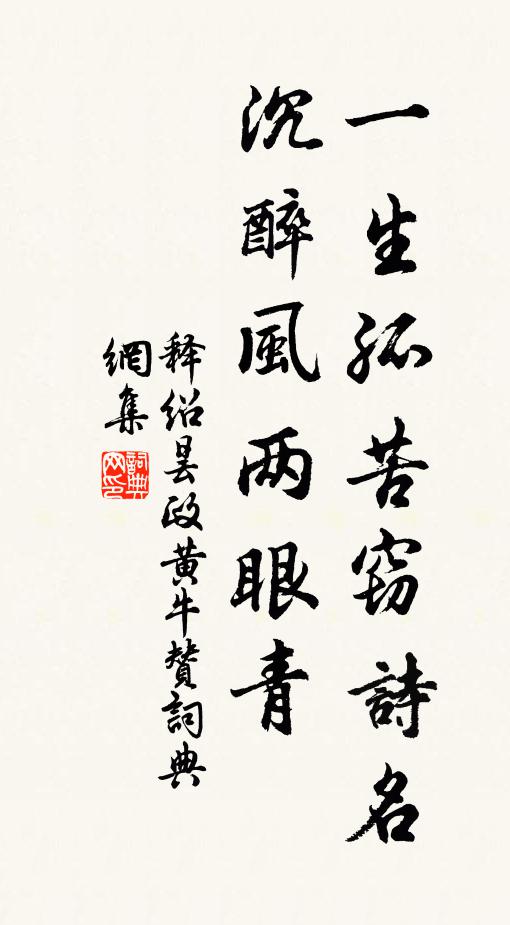 一生孤苦窃詩名
沉醉風两眼青
释绍昙政黄牛贊詞典
網集
詞典
网印